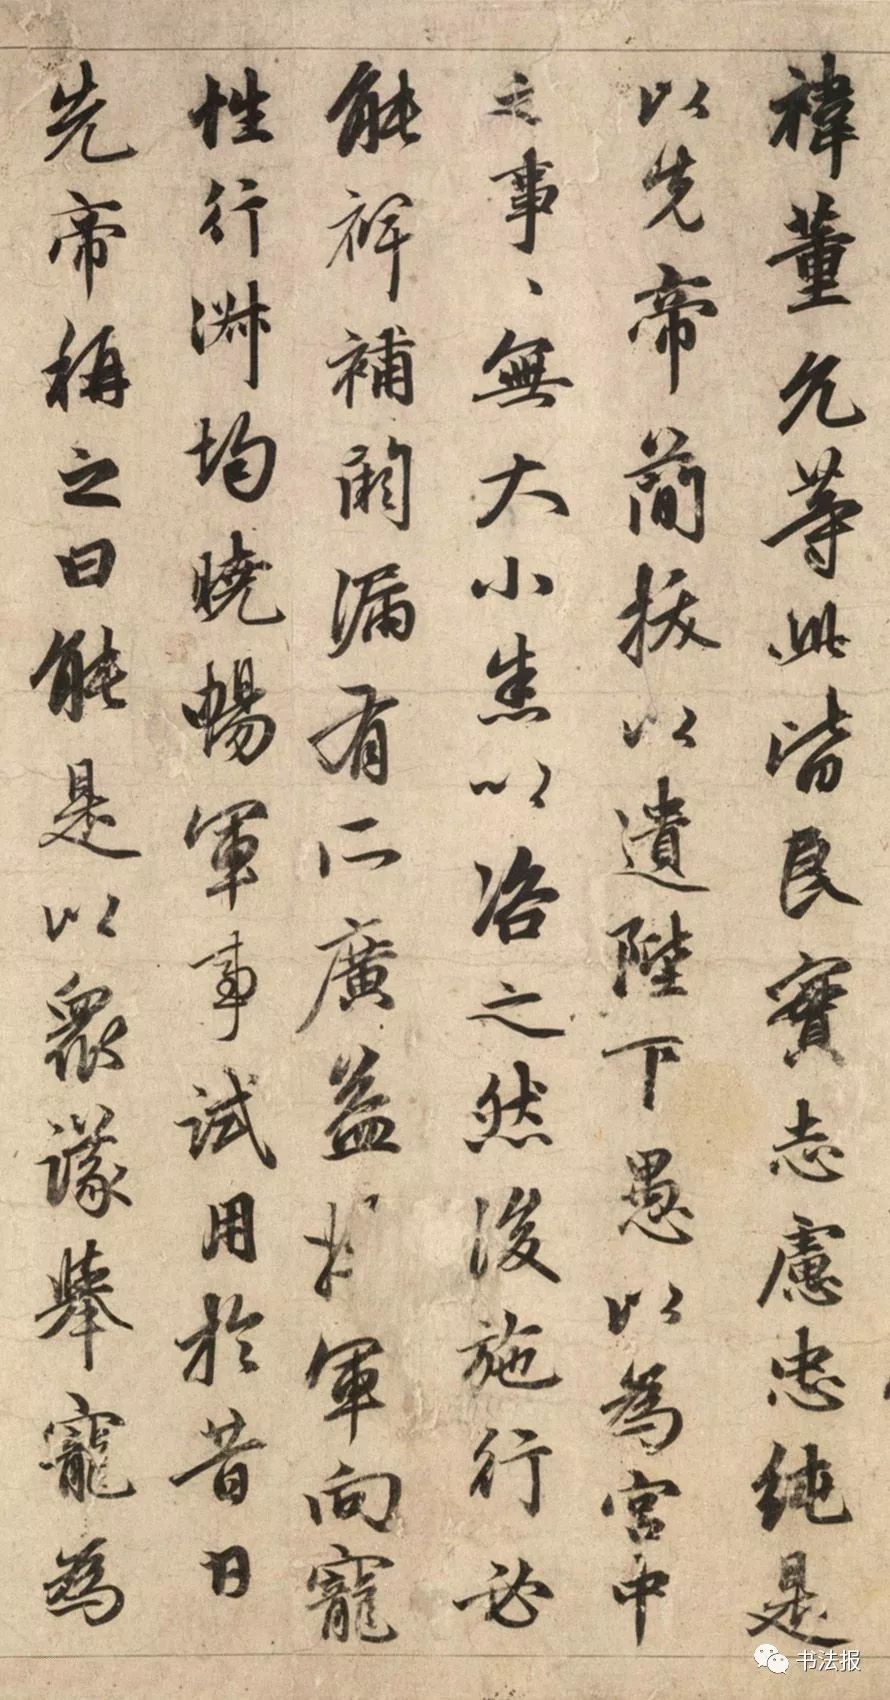 禕董允等此皆良實志慮忠純是
以先帝簡拔以遺陛下愚以為宮中
之事、無大小悉以咨之然後施行必
能裨補闕漏有所廣益將軍向寵
性行淑均曉暢軍事試用於昔日
先帝稱之曰能是以眾議舉寵為
书法报